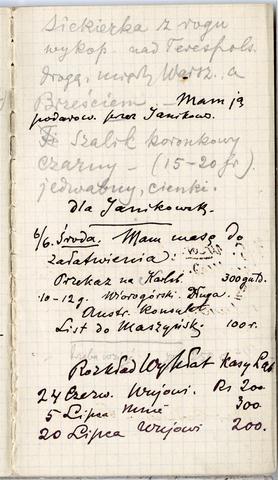 Siekierka z rogu
wykop. nad Terespols.
drogą, między Warsz. a
Brześciem – Mam ją
podarow. przez Janikow.
Szalik koronkowy
czarny – (15-20 fr)
jedwabny, cienki.
dla Janikowsk.
6/6. Środa. Mam masę do
załatwienia:
Przekaz na Karlsb. 300 guld.
10-12 g. Wiorogórski. Długa.
Austr. Konsulat
List do Maszyńsk. 100 r.
Rozkład Wypłat Kasy
24 Czerw. Wujowi. Rs 200
5 Lipca Mnie 300
20 Lipca Wujowi 200.